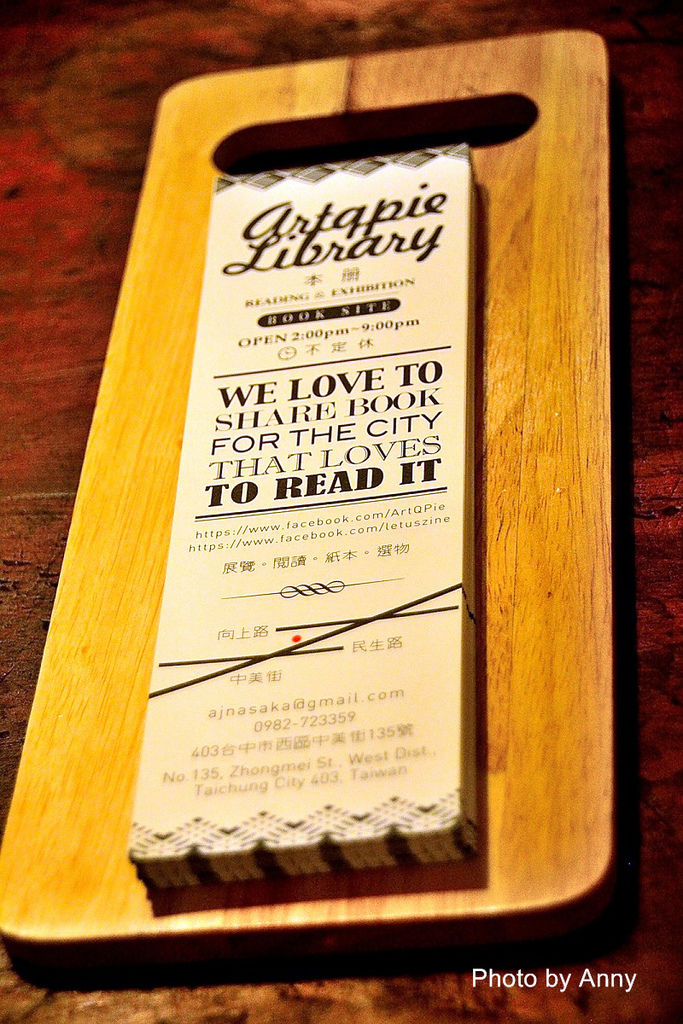 Artqpie
Library
本 冊
READING & EXHIBITION
BOOK SITE
OPEN 2:00pm~9:00pm
不 定 休
WE LOVE TO
SHARE BOOK
FOR THE CITY
THAT LOVES
TO READ IT
https://www.facebook.com/ArtQPie
https://www.facebook.com/letuszine
展覽。閱讀。紙本。選物
向上路
民生路
中美街
ajnasaka@gmail.com
0982-723359
403台中市西區中美街135號
No.135, Zhongmei St., West Dist.,
Taichung City 403, Taiwan
Photo by Anny